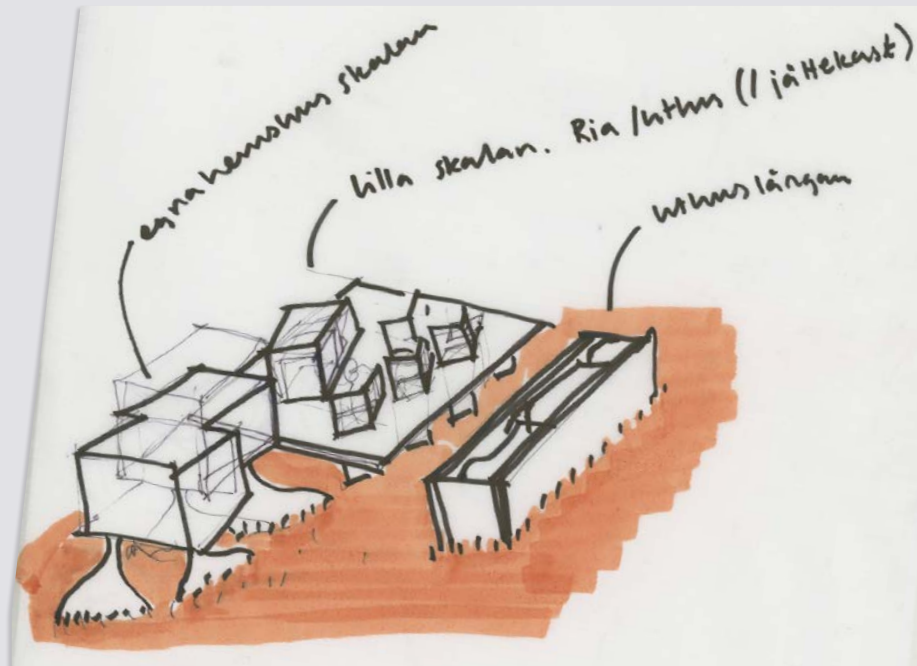 egnahemshus skalan
lilla skalan. Ria /uthus (1 jättekast)
uthuslängan